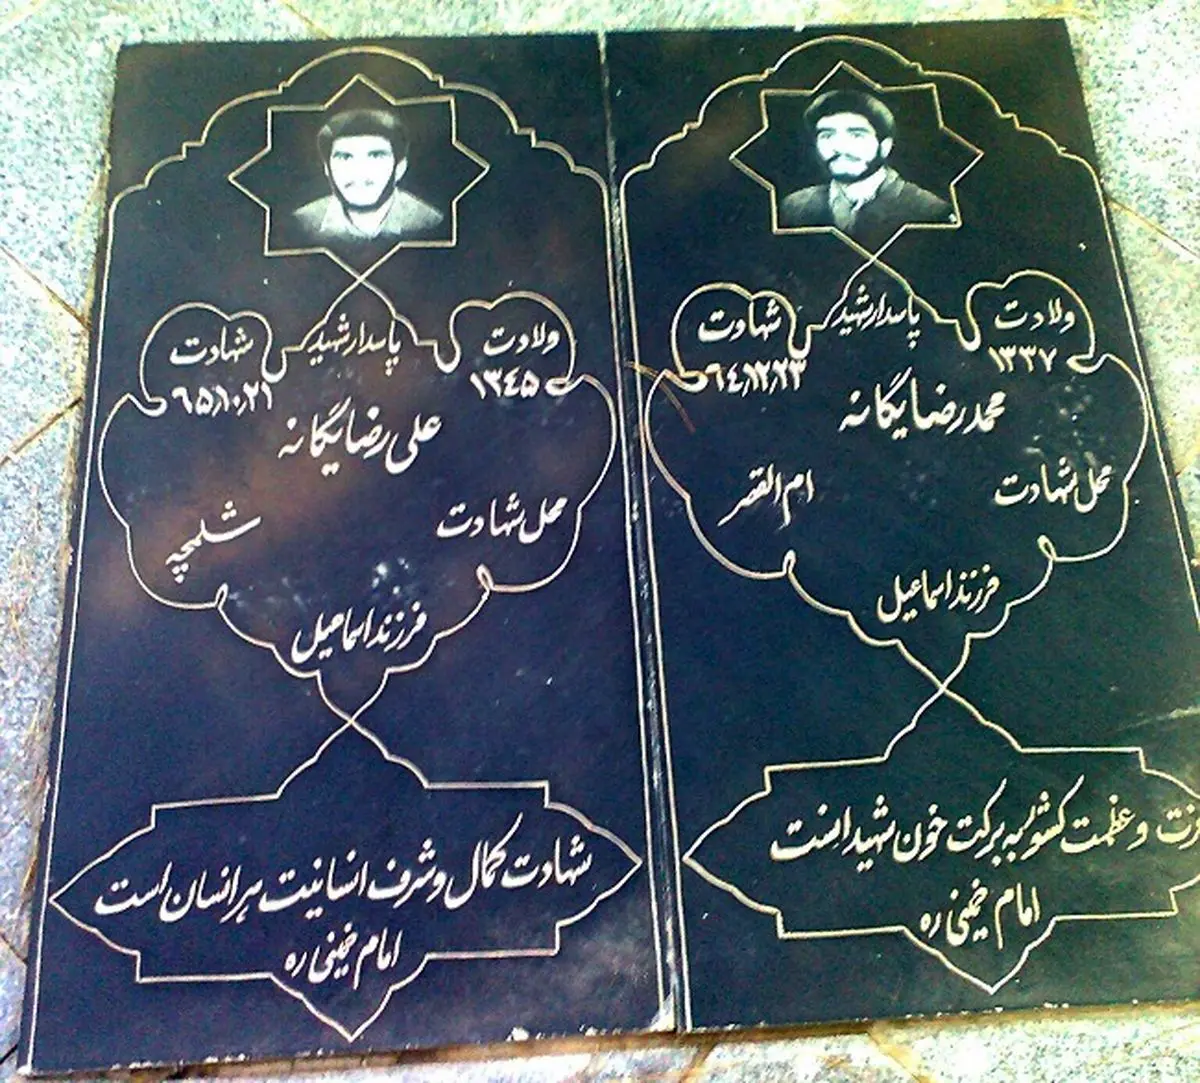 پاسدار شهید
ولادت ۱۳۳۷
شهادت ۶۴٫۱۲٫۲۳
محمد رضا یگانه
محل شهادت ام القصر
فرزند اسماعیل
و عظمت کشور به برکت خون شهید است
امام خمینی ره
پاسدار شهید
ولادت ۱۳۴۵
شهادت ۶۵٫۱۰٫۲۱
علی رضا یگانه
محل شهادت شلمچه
فرزند اسماعیل
شهادت کمال و شرف انسانیت هر انسان است
امام خمینی ره